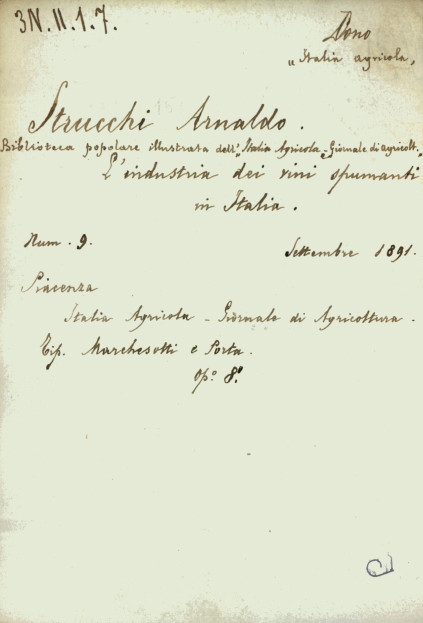 3N.II.1.7.
Dono
"Italia agricola"
Strucchi Arnaldo.
Biblioteca popolare illustrata dell'"Italia Agricola - Giornale di agricolt."
L'industria dei vini spumanti
in Italia.
Num. 9. Settembre 1891.
Piacenza
Italia Agricola - Giornale di Agricoltura.
Tip. Marchesotti e Porta.
Op.° 8°.